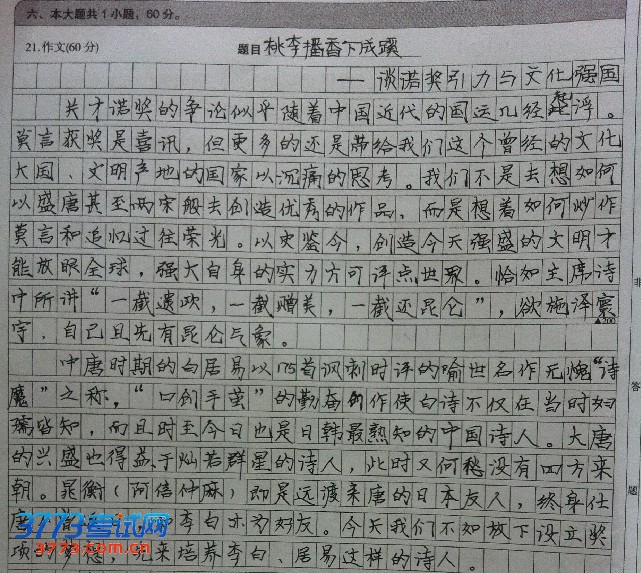 六、本大题共1小题，60分。
21.作文(60分) 题目 桃李播香下成蹊
——谈诺奖引力与文化强国
关于诺奖的争论似乎随着中国近代的国运几经沉浮。
莫言获奖是喜讯，但更多的还是带给我们这个曾经的文化
大国、文明产地的国家以沉痛的思考。我们不是去想如何
以盛唐甚至两宋般去创造优秀的作品，而是想着如何炒作
莫言和追忆过往荣光。以史鉴今，创造今天强盛的文明才
能放眼全球，强大自身的实力方可评点世界。恰如主席诗
中所讲“一截遗欧，一截赠美，一截还昆仑”，欲施泽寰
▲200
宇，自己且先有昆仑气象。
中唐时期的白居易以175首讽刺时评的喻世名作无愧“诗
魔”之称，“口创手茧”的勤奋创作使白诗不仅在当时妇
孺皆知，而且时至今日也是日韩最熟知的中国诗人。大唐
的兴盛也得益于灿若群星的诗人，此时又何愁没有四方来
朝。晁衡（阿倍仲麻）即是远渡来唐的日本友人，终身仕
唐 李白亦为好友。今天我们不如放下设立奖
项的 来培养李白、居易这样的诗人。
3773考试网
3773.com.cn
非
答
题